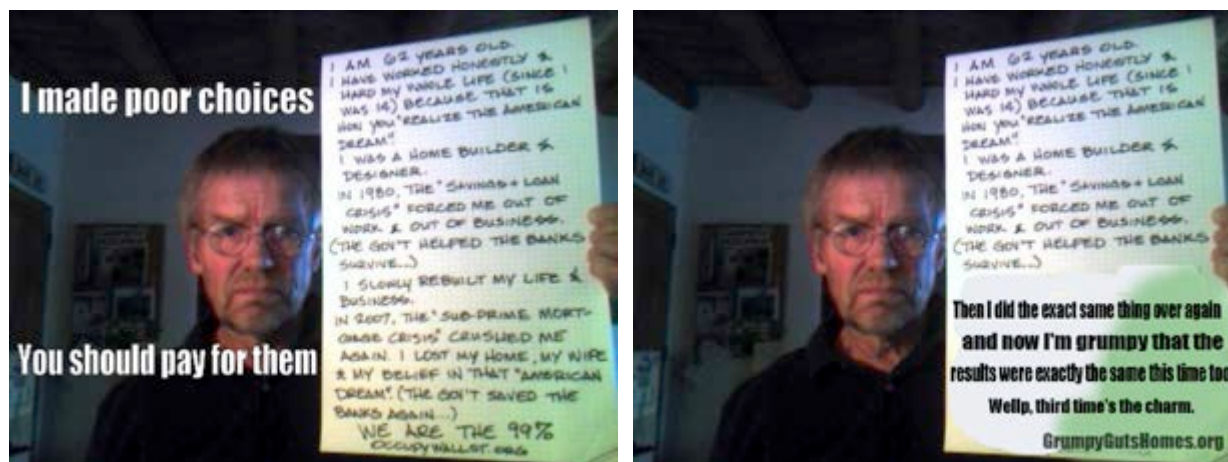 I made poor choices
You should pay for them
I AM 62 YEARS OLD.
I HAVE WORKED HONESTLY &
HARD MY WHOLE LIFE (SINCE I
WAS 14) BECAUSE THAT IS
HOW YOU "REALIZE THE AMERICAN
DREAM".
I WAS A HOME BUILDER &
DESIGNER.
IN 1980, THE "SAVINGS + LOAN
CRISIS" FORCED ME OUT OF
WORK & OUT OF BUSINESS.
(THE GOV'T HELPED THE BANKS
SURVIVE...)
I SLOWLY REBUILT MY LIFE &
BUSINESS.
IN 2007, THE "SUB-PRIME MORT-
GAGE CRISIS" CRUSHED ME
AGAIN. I LOST MY HOME, MY WIFE
& MY BELIEF IN THAT "AMERICAN
DREAM". (THE GOV'T SAVED THE
BANKS AGAIN...)
WE ARE THE 99%
OCCUPYWALLST.ORG
I AM 62 YEARS OLD.
I HAVE WORKED HONESTLY &
HARD MY WHOLE LIFE (SINCE I
WAS 14) BECAUSE THAT IS
HOW YOU "REALIZE THE AMERICAN
DREAM".
I WAS A HOME BUILDER &
DESIGNER.
IN 1980, THE "SAVINGS + LOAN
CRISIS" FORCED ME OUT OF
WORK & OUT OF BUSINESS.
(THE GOV'T HELPED THE BANKS
SURVIVE...)
Then I did the exact same thing over again
and now I'm grumpy that the
results were exactly the same this time too
Wellp, third time's the charm.
GrumpyGutsHomes.org